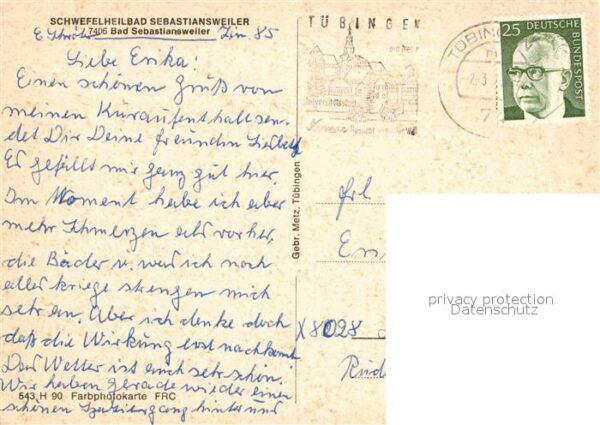 SCHWEFELHEILBAD SEBASTIANSWEILER
7406 Bad Sebastiansweiler
Zim. 85
Liebe Erika!
Einen schönen Gruß von
meinen Kuraufenthalt sen-
det Dir Deine freundin Liesbeth
Es gefällt mir ganz gut hier,
Im Moment habe ich aber
mehr Schmerzen als vorher,
die Bäder u. was ich noch
alles kriege strengen mich
sehr an. Aber ich denke doch
daß die Wirkung erst nachkommt
Das Wetter ist auch sehr schön.
Wir haben gerade wieder einen
543 H 90 Farbphotokarte FRC
schönen Spaziergang hinter uns
Gebr. Metz, Tübingen
TÜBINGEN
TÜBING
25 DEUTSCHE BUNDESPOST
frl
Eri
X8028
privacy protection
Datenschutz